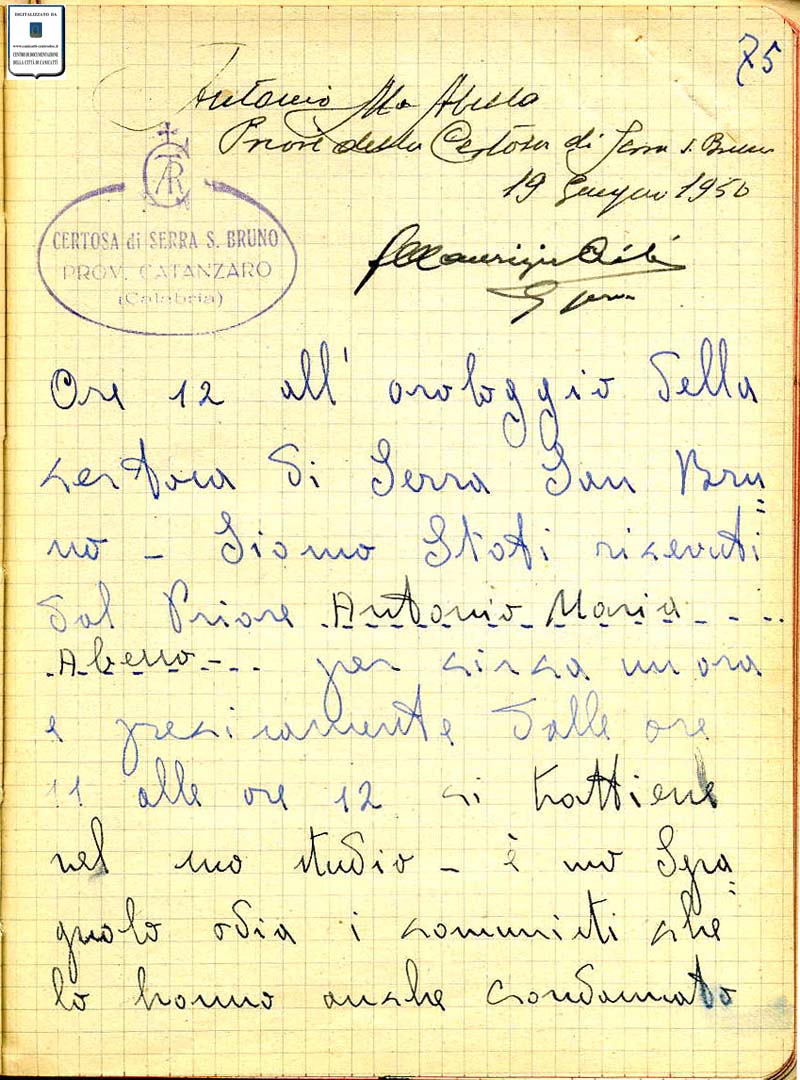 DIGITALIZZATO DA
CENTRO DI DOCUMENTAZIONE
DELLA CITTÀ DI CANICATTÌ
75
Antonio Ma
Priore della Certosa di Serra S. Bruno
19 Giugno 1950
CERTOSA di SERRA S. BRUNO
PROV. CATANZARO
(Calabria)
Ore 12 all' orologgio della
certosa di Serra San Bru=
no - Siamo Stati ricevuti
dal Priore Antonio Maria
per circa un ora
e precisamente dalle ore
11 alle ore 12 ci trattiene
nel suo studio - è uno Spa=
gnolo odia i comunisti che
lo hanno anche condannato